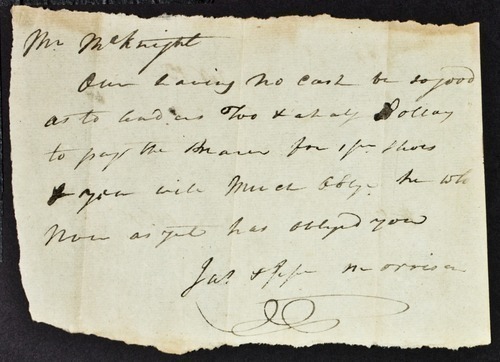 Mr McKnight
Our having no cash be so good
as to lend us Two & a half Dollars
to pay the Bearer for 1 pr Shoes
& you will Much Oblige he who
Never as yet has obliged you
Jas & Morrison